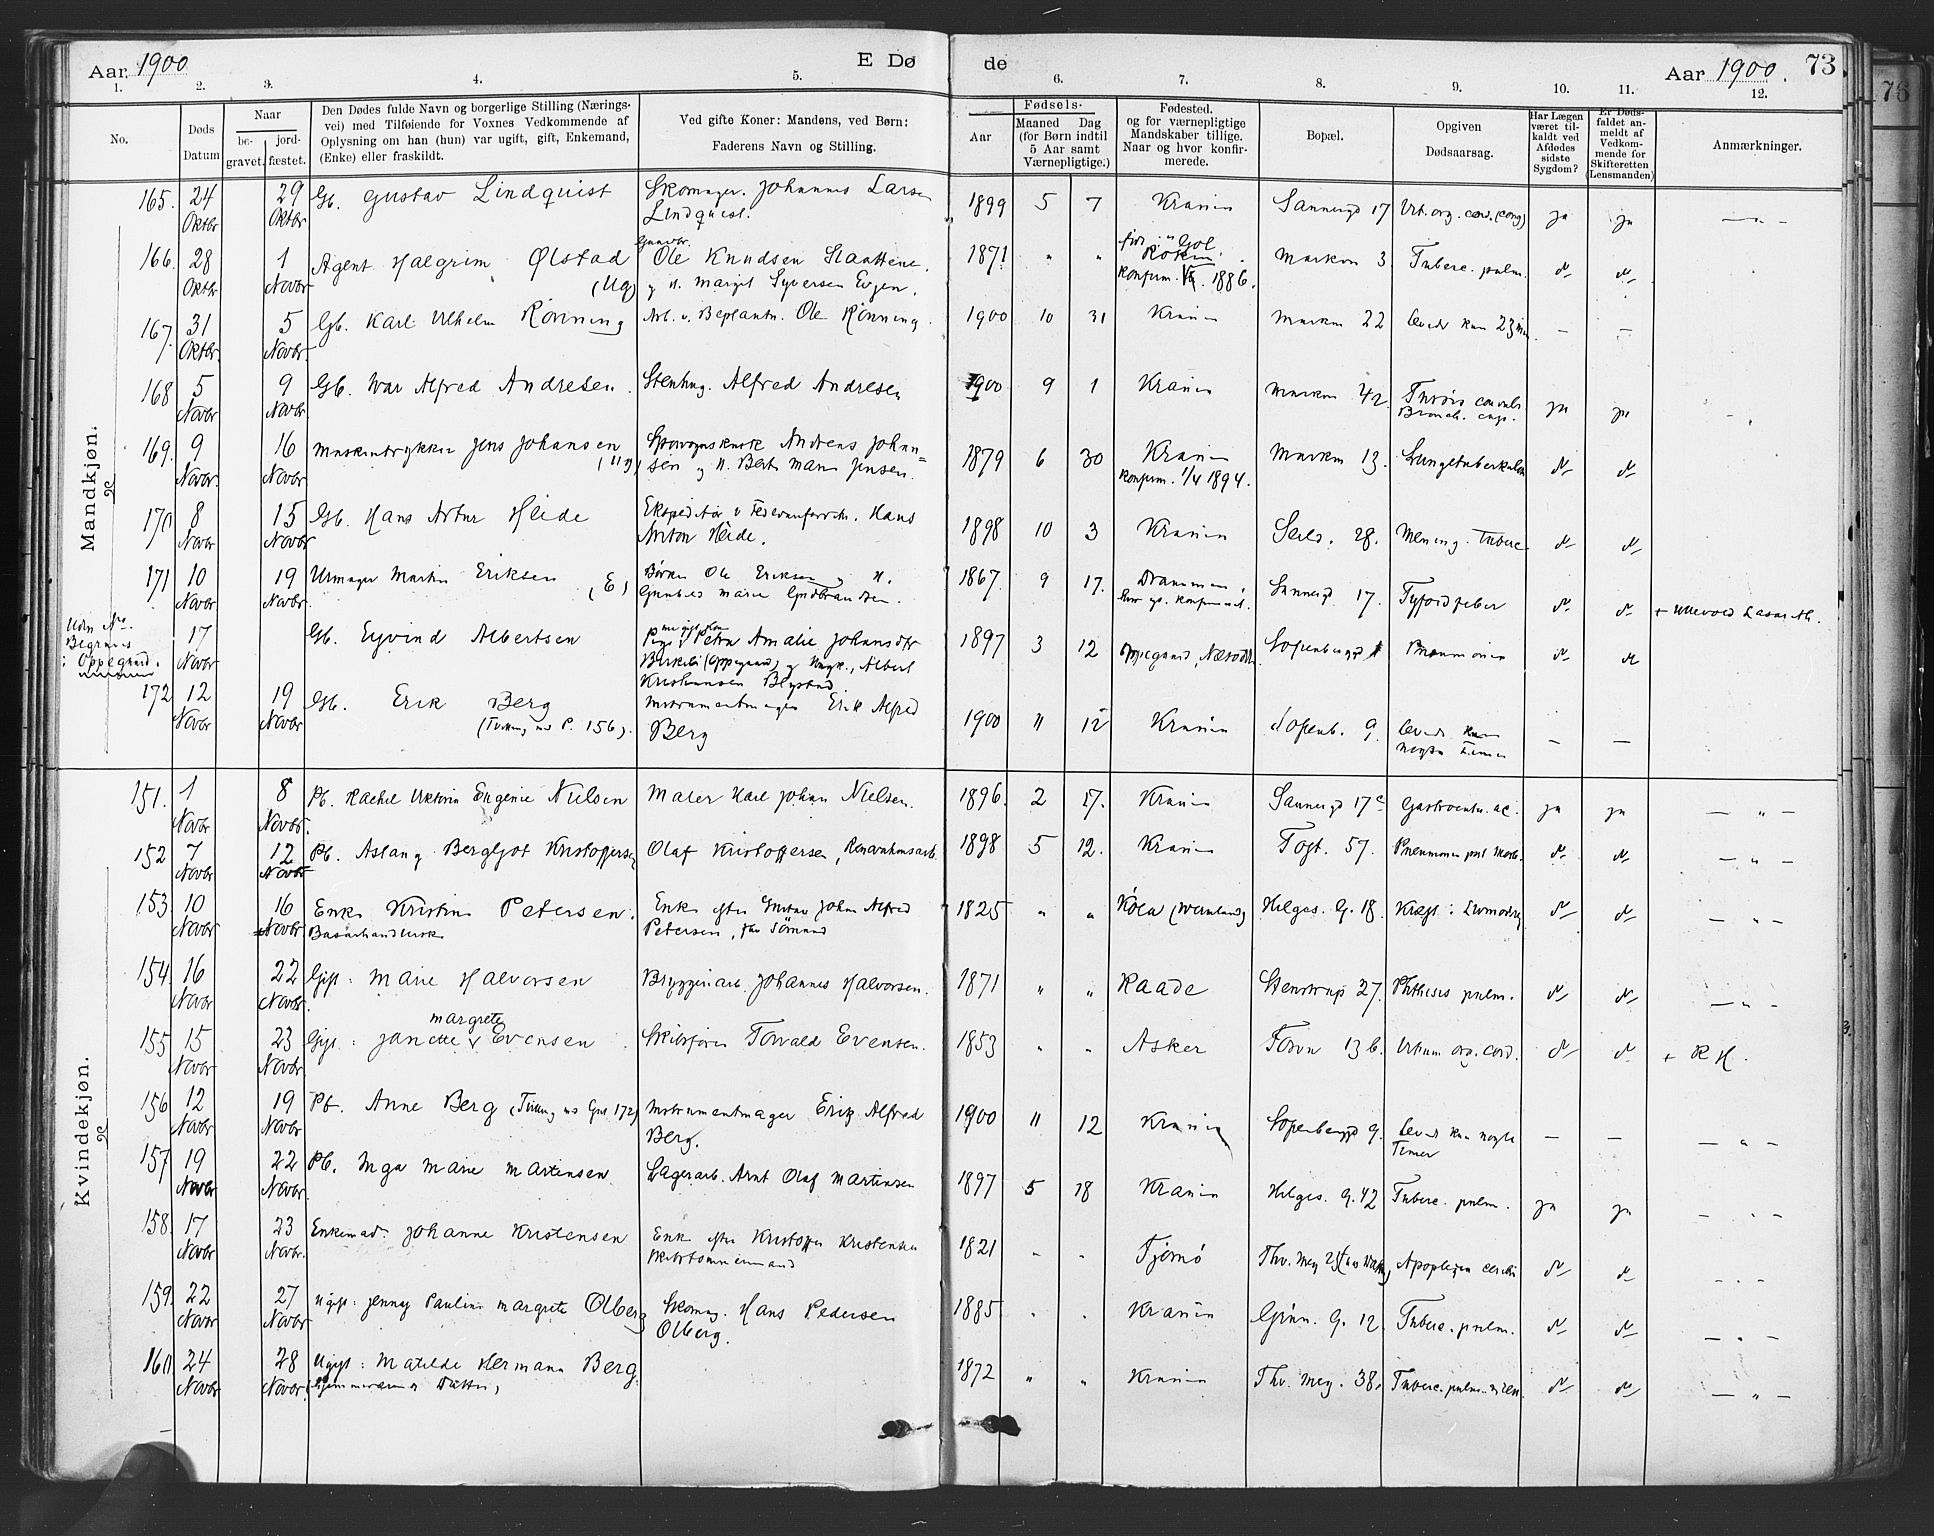 Aar 1900
E Døde
Aar 1900.
73
76
1. 2. 3. 4. 5. 6. 7. 8. 9. 10. 11. 12.
No.
Døds Datum
Naar be-gravet. jord-fæstet.
Den Dødes fulde Navn og borgerlige Stilling (Nærings-
vei) med Tilføiende for Voxnes Vedkommende af
Oplysning om han (hun) var ugift, gift, Enkemand,
(Enke) eller fraskildt.
Ved gifte Koner: Mandens, ved Børn:
Faderens Navn og Stilling.
Fødsels-
Aar
Maaned Dag
(for Børn indtil
5 Aar samt
Værnepligtige.)
Fødested.
og for værnepligtige
Mandskaber tillige.
Naar og hvor konfir-
merede.
Bopæl.
Opgiven
Dødsaarsag.
Har Lægen
været til-
kaldt ved
Afdødes
sidste
Sygdom?
Er Døds-
faldet an-
meldt af
Vedkom-
mende for
Skifteretten
(Lensmanden)
Anmærkninger.
Mandkjøn.
165. 24 Oktbr 29 Oktbr Gb. Gustav Lindquist Skomager. Johannes Larsen Lindquist. 1899 5 7 Krania Sannergd 17 Vit. org. cord. (cong) ja ja — " —
166. 28 Oktbr 1 Novbr Agent Halgrim Ølstad (Ug) Ole Knudsen og H. Margit Syversen Evjen. 1871 " " Gol Konfirm. 1886. Markvn 3 Tuberc. pulm. do do
167. 31 Oktbr 5 Novbr Gb. Karl Vilhelm Rønning Arb. v. Beplantn. Ole Rønning. 1900 10 31 Krania Markvn 22 levede kun 23 min. — —
168 5 Novbr 9 Novbr Gb. Ivar Alfred Andresen. Stenhug. Alfred Andresen 1900 9 1 Krania Markvn 42 Tussis convuls. Bronch. caps. ja ja
169. 9 Novbr. 16 Novbr Maskintrykker Jens Johansen (Ug) Sporvognskusk Andreas Johan=sen og H. Berte Marie Jensen. 1879 6 30 Krania Konfirm. 1/4 1894. Markvn 13. Lungetuberkulose do do
170 8 Novbr 15 Novbr Gb. Hans Artur Heide Ekspeditør v Hans Anton Heide. 1898 10 3 Krania Seild. 28. Mening. Tuberc. do do
171 10 Novbr 19 Novbr. Urmager Martin Eriksen (E) Ole Eriksen og H. Marie Gudbrandsen. 1867. 9 17. Drammen. Sannergd 17. Tyfoidfeber do do + Ullevold Lasareth.
Uden No. Begraves i Oppegaard. 17 Novbr Gb. Eyvind Albertsen Pige Petra Amalie Johansdtr Birkeli (Oppegaard) og Albert Kristiansen 1897 3 12 Oppegaard, Næsodden. Sofienberggd Pneumonia do do
172 12 Novbr 19 Novbr Gb. Erik Berg (Tvilling med P. 156). Instrumentmager Erik Alfred Berg 1900 11 12 Krania Sofienb. 9. levede kun nogle Timer — —
Kvindekjøn.
151. 1 Novbr 8 Novbr. Pb. Rachel Viktoria Eugenie Nielsen Maler Karl Johan Nielsen. 1896. 2 17. Krania Sannergd 17c Gastroenter. ac. ja ja — " —
152 7 Novbr 12 Novbr Pb. Aslaug Bergljot Kristoffersen Olaf Kristoffersen, Renovationsarb. 1898 5 12. Krania Fogt. 57. Pneumonia post Morb. do do — " —
153. 10 Novbr 16 Novbr Enke Kristine Petersen. Basarhandlerske Enke efter Gustav Johan Alfred Petersen, Sømand 1825 " " Köla (Wermland) Helges. G. 18. Kræft i Livmoderen do do — " —
154. 16 Novbr 22 Novbr. Gift: Marie Halvorsen Bryggeriarb. Johannes Halvorsen. 1871 " " Raade Stenstrup 27. Phthisis pulm. do do — " —
155 15 Novbr 23 Novbr Gift: Janette Margrete Evensen Skibsfører Torvald Evensen. 1853 " " Asker Fossvn 13 b. Vitium org. cord. do do + R H.
156 12 Novbr 19 Novbr Pb. Anne Berg (Tvilling med Gut 172) Instrumentmager Erik Alfred Berg. 1900 11 12 Krania Sofienberggd 9. levede kun nogle Timer — — — " —
157 19 Novbr 22 Novbr. Pb. Inga Marie Martinsen Lagerarb. Arnt Olaf Martinsen 1897 5 18 Krania Helges. G. 42 Tuberc. pulm. ja ja — " —
158. 17 Novbr 23 Novbr. Enkemad. Johanne Kristensen Enke efter Kristoffer Kristensen Skibstømmermand 1821 " " Tjømø Thv. Mey Apoplexia cerebri do do — " —
159. 22 Novbr 27 Novbr Ugift: Jenny Pauline Margrete Olberg Skomag. Hans Pedersen Olberg. 1885 " " Krania Grün. G. 12. Tuberc. pulm. do do — " —
160 24 Novbr 28 Novbr. Ugift: Matilde Hermana Berg. 1872 " " Krania Thv. Mey. 38. Tuberc. pulm. do do — " —